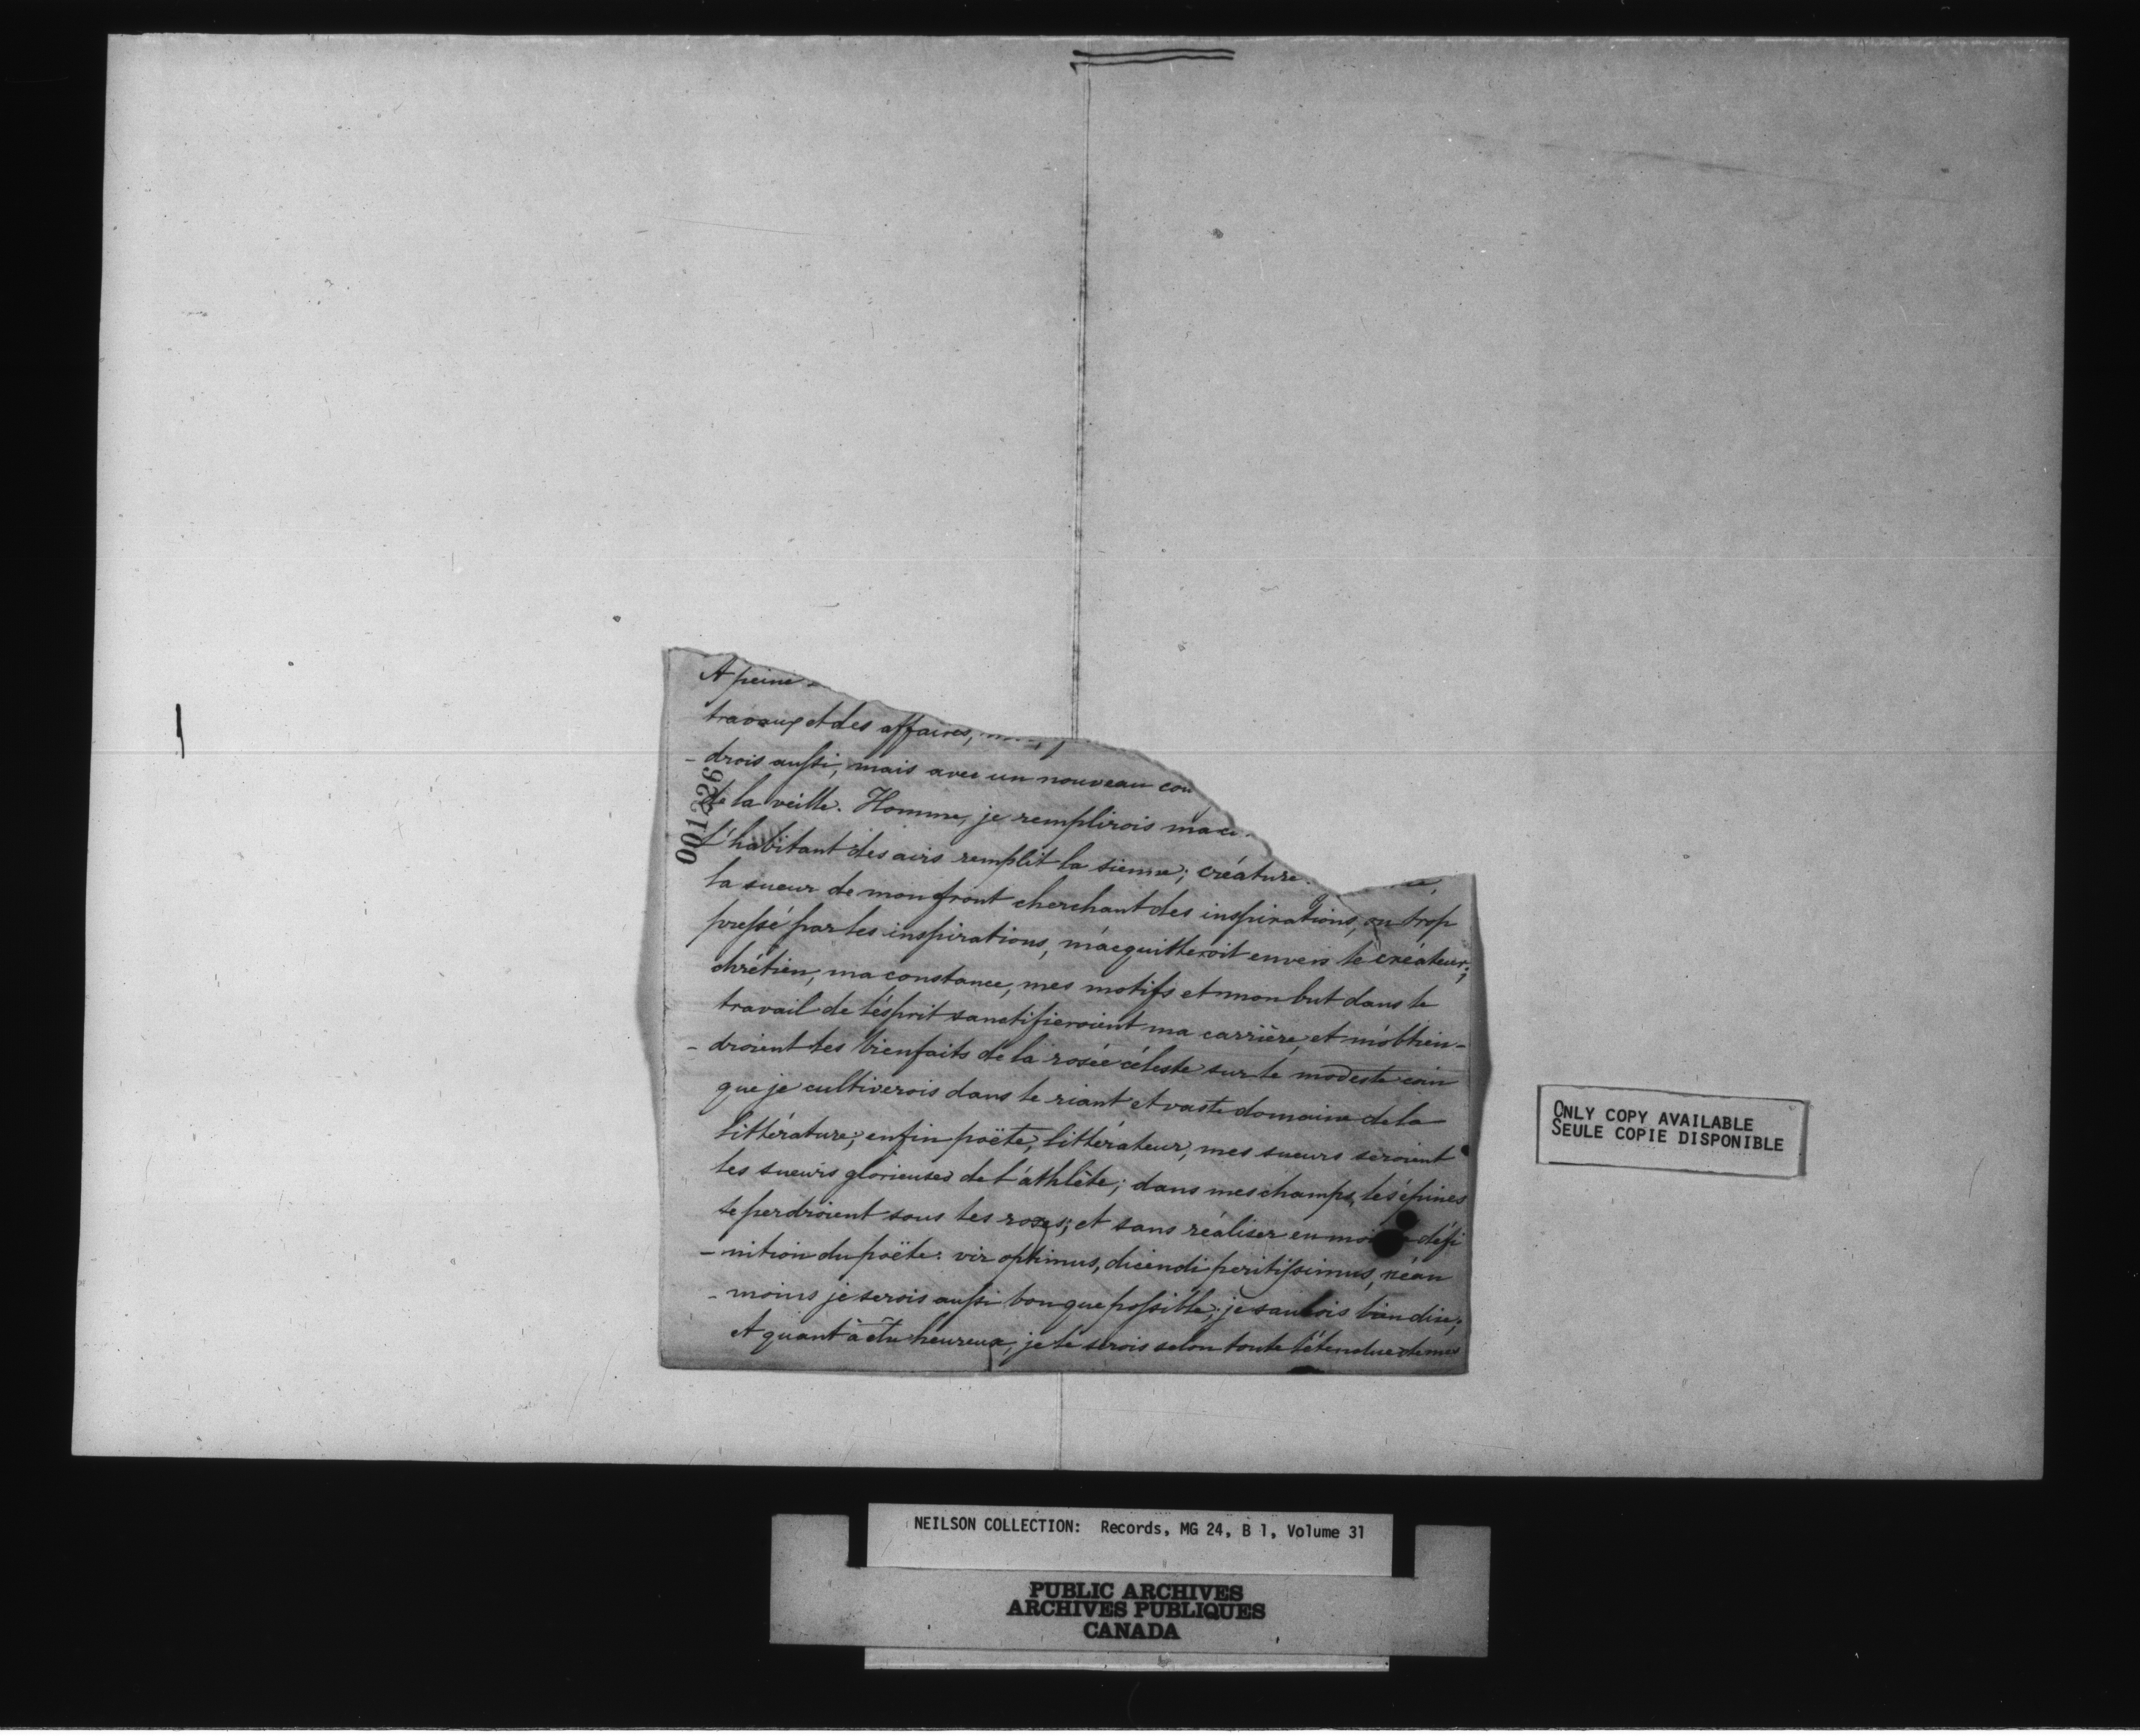 A peine
travaux et des affaires,
- drois aussi, mais avec un nouveau cou
de la veille. Homme, je remplirois ma
l'habitant des airs remplit la sienne; créature
la sueur de mon front cherchant des inspirations, ou trop
pressé par les inspirations, m'acquitteroit envers le créateur;
chrétien, ma constance, mes motifs et mon but dans le
travail de l'ésprit sanctifieroient ma carrière, et m'obtien-
- droient les bienfaits de la rosée céleste sur le modeste coin
que je cultiverois dans le riant et vaste domaine de la
littérature; enfin poëte, littérateur, mes sueurs seroient
les sueurs glorieuses de l'athlête; dans mes champs, les épines
se perdroient sous les roses; et sans réaliser en moi défi
- nition du poëte: vir optimus, dicendi peritissimus, néan
- moins je serois aussi bon que possible; je saurois bien dire;
et quant à être heureux, je le serois selon toute l'étendue de mes
001226
ONLY COPY AVAILABLE
SEULE COPIE DISPONIBLE
NEILSON COLLECTION: Records, MG 24, B 1, Volume 31
PUBLIC ARCHIVES
ARCHIVES PUBLIQUES
CANADA